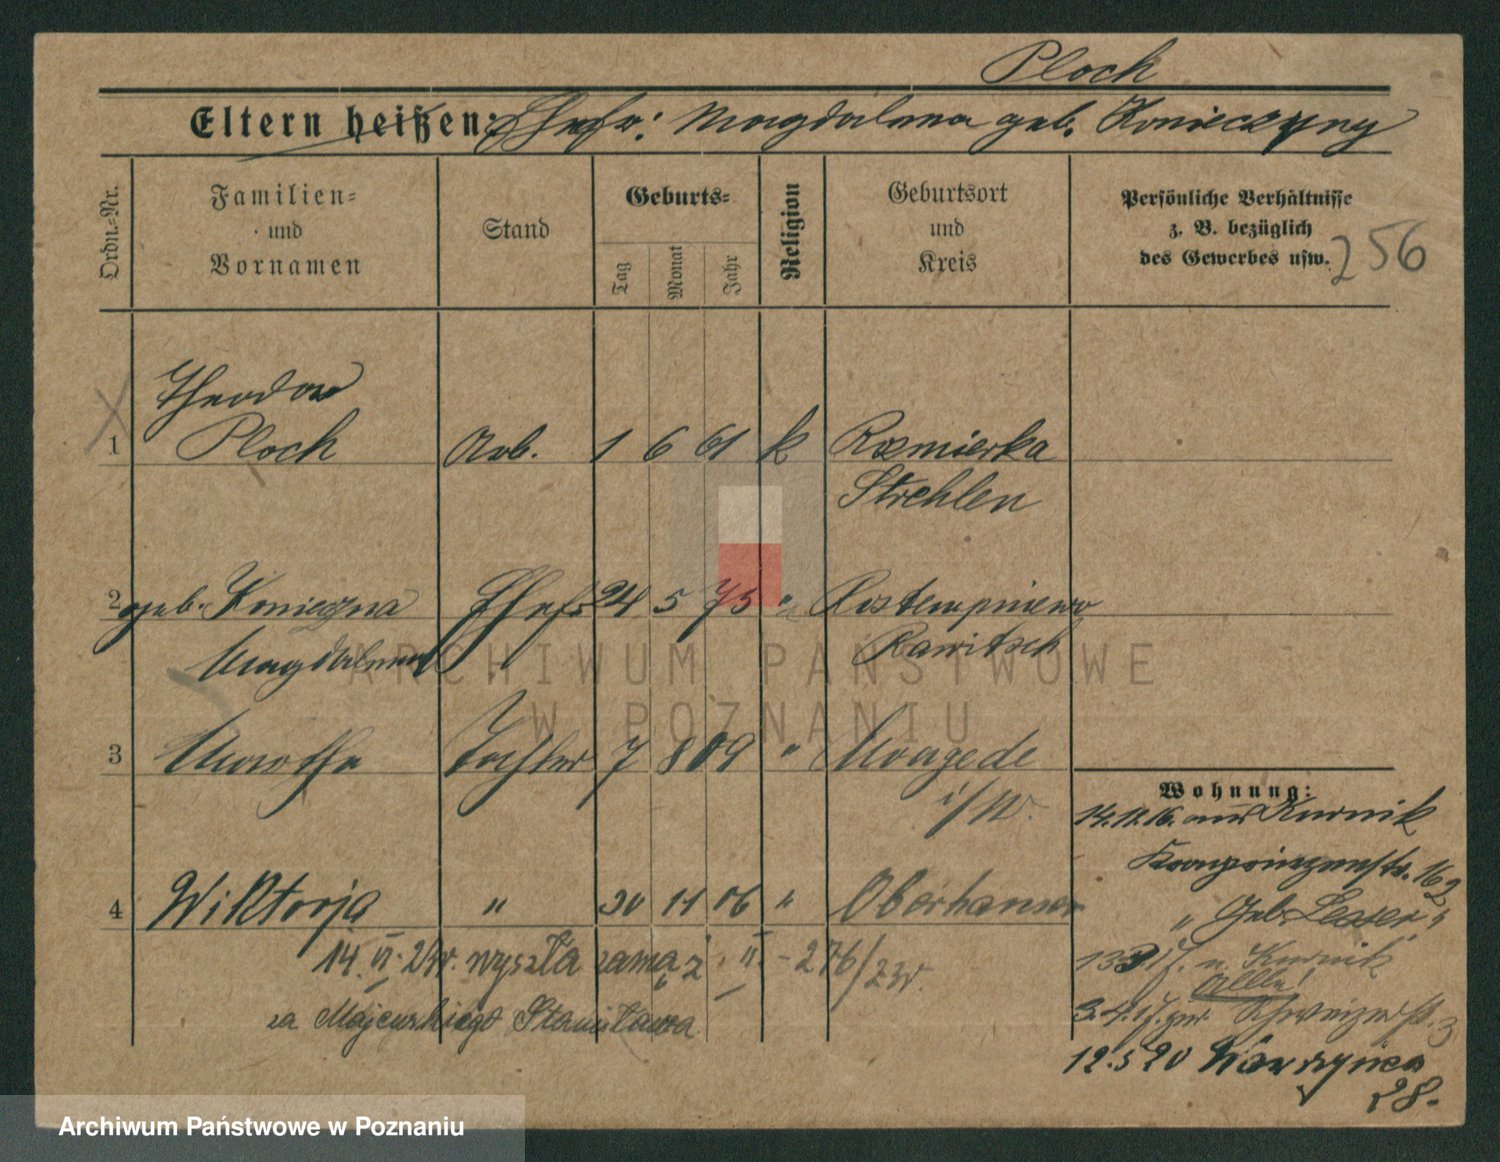 Ploch
Eltern heißen: Ehefr: Magdalena geb. Konieczny
Ordn.-Nr.
Familien-
und
Vornamen
Stand
Geburts-
Tag
Monat
Jahr
Religion
Geburtsort
und
Kreis
Persönliche Verhältnisse
z. B. bezüglich
des Gewerbes usw.
256
Theodor
1 Ploch Arb. 1 6 61 k Rosmierka
Strehlen
2 geb. Konieczna Ehefr. 24 5 75 " Rostempniewo
Magdalena Rawitsch
3 Martha Tochter 7 8 09 " Mengede
i/W.
4 Wiktorja " 30 11 06 " Oberhausen
14. VI. 23r. wyszła zamąż II. - 276/23r.
za Majewskiego Stanisława
Wohnung:
14.11.16. aus Kurnik
Kronprinzenstr. 162
" Geb. Lesser
n. Kurnik
3.4.17. zur. Schweizerstr. 3
12.5 20 Wawrzyńca
28.
ARCHIWUM PAŃSTWOWE
W POZNANIU
Archiwum Państwowe w Poznaniu